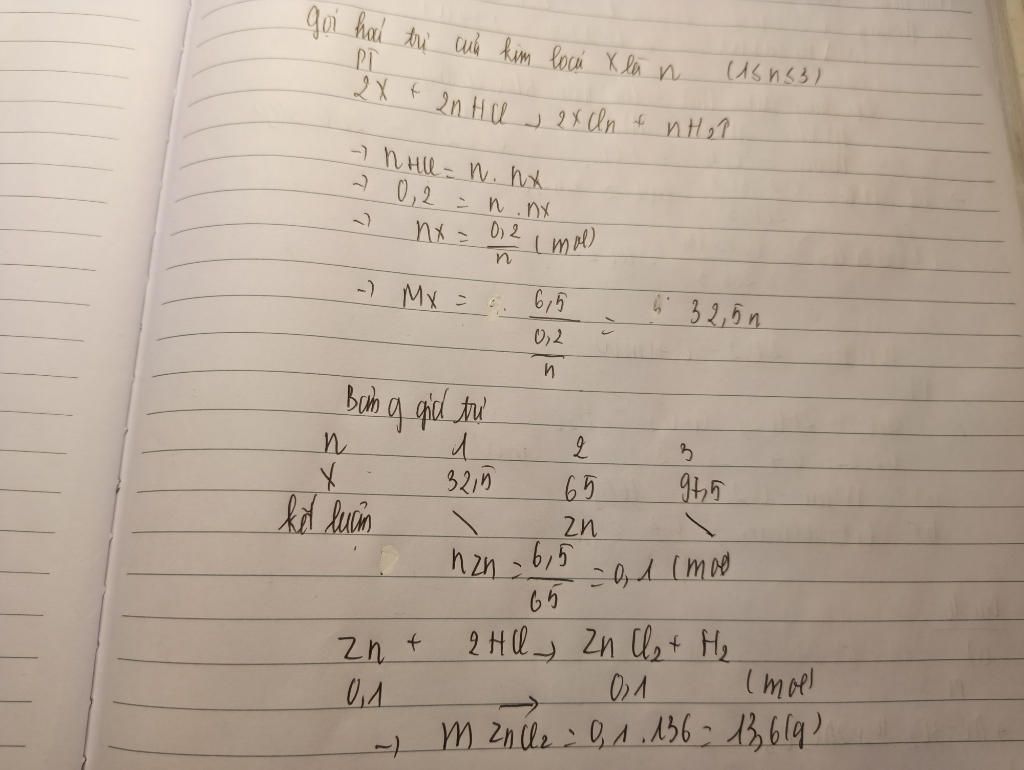 gọi hoá trị của kim loại X là n (1≤n≤3)
PT
2X + 2nHCl → 2XCln + nH2↑
→ nHCl = n. nX
→ 0,2 = n . nX
→ nX = 0,2/n (mol)
→ MX = 6,5/(0,2/n) = 32,5n
Bảng giá trị
n 1 2 3
X 32,5 65 97,5
kết luận \ Zn \
nZn = 6,5/65 = 0,1 (mol
Zn + 2HCl → ZnCl2 + H2
0,1 → 0,1 (mol)
→ m ZnCl2 = 0,1.136 = 13,6(g)